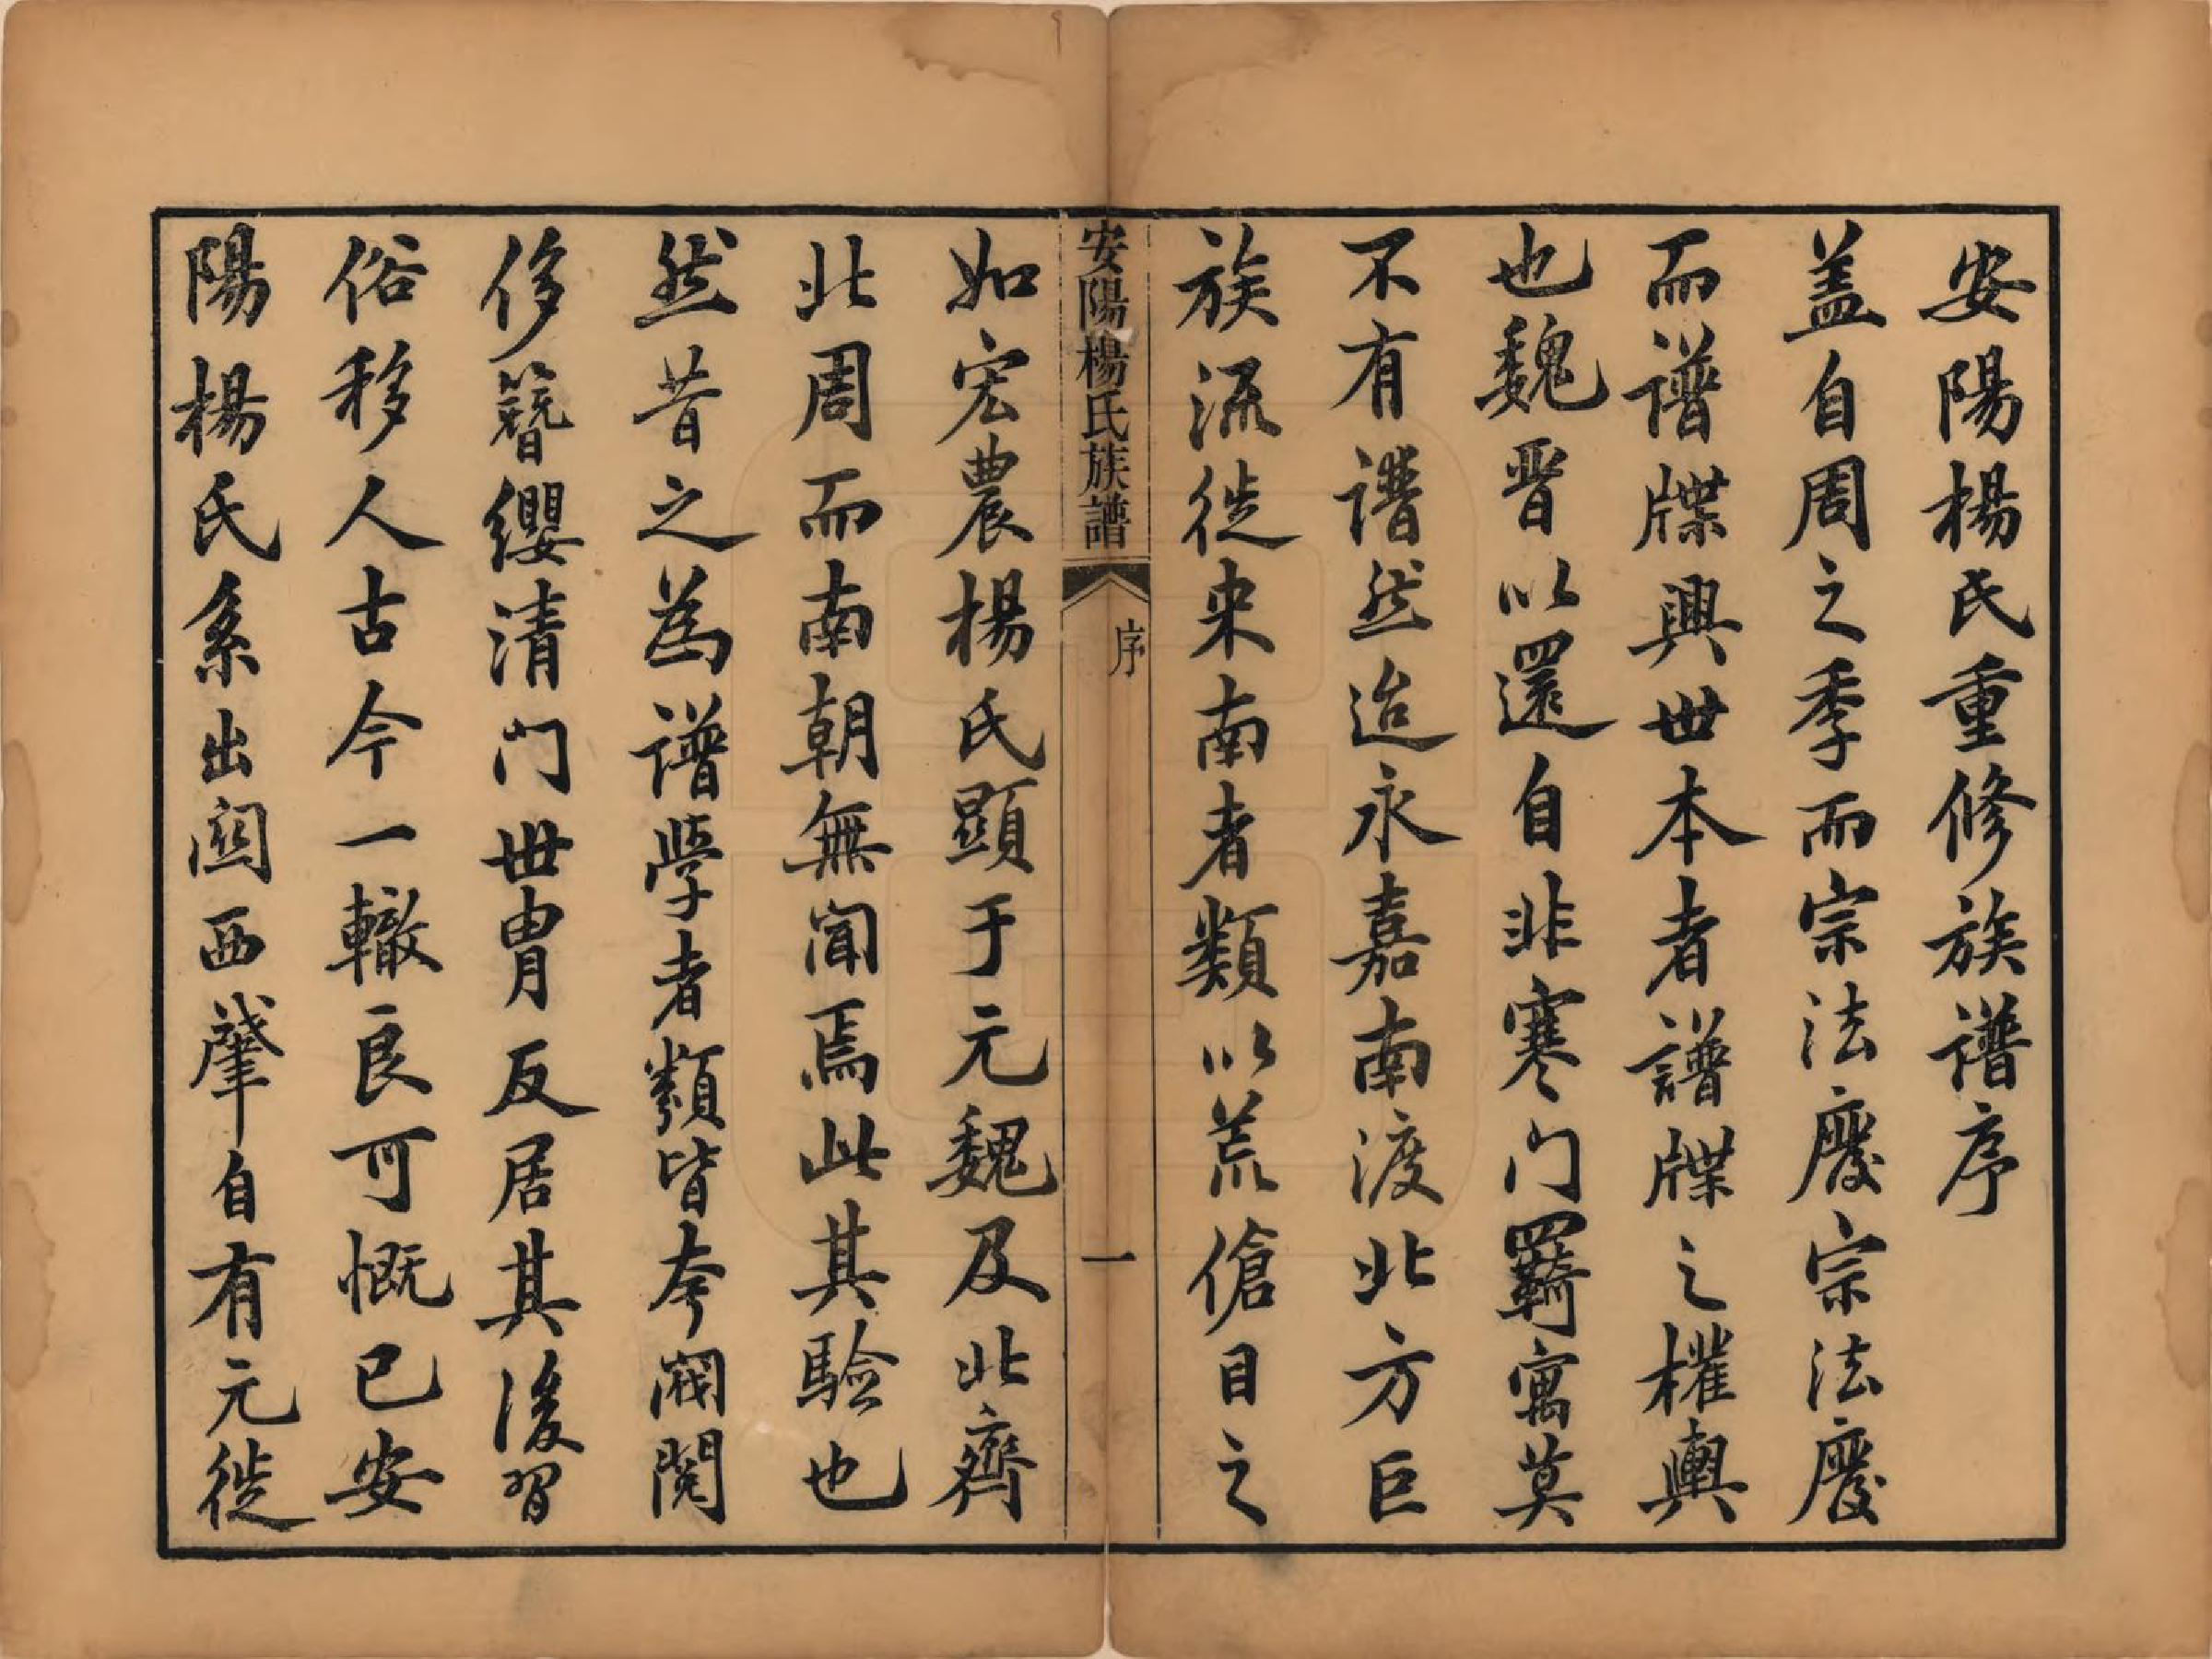 安陽楊氏重修族譜序
蓋自周之季而宗法廢宗法廢
而譜牒興世本者譜牒之權輿
也魏晉以還自非寒門羇寓莫
不有譜然迨永嘉南渡北方巨
族流徙来南者類以荒傖目之
安陽楊氏族譜
序
一
如宏農楊氏顯于元魏及北齊
北周而南朝無聞焉此其驗也
然昔之為譜學者類皆夸閥閱
侈簪纓清門世冑反居其後習
俗移人古今一轍良可慨已安
陽楊氏系出関西肇自有元徙